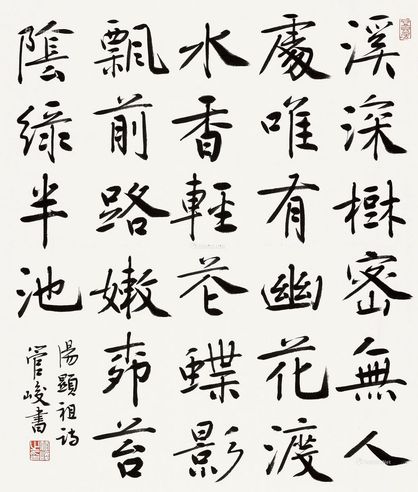 溪深樹密無人
處唯有幽花渡
水香輕花蝶影
飄前路嫩柳苔
陰綠半池
湯顯祖詩
管峻書